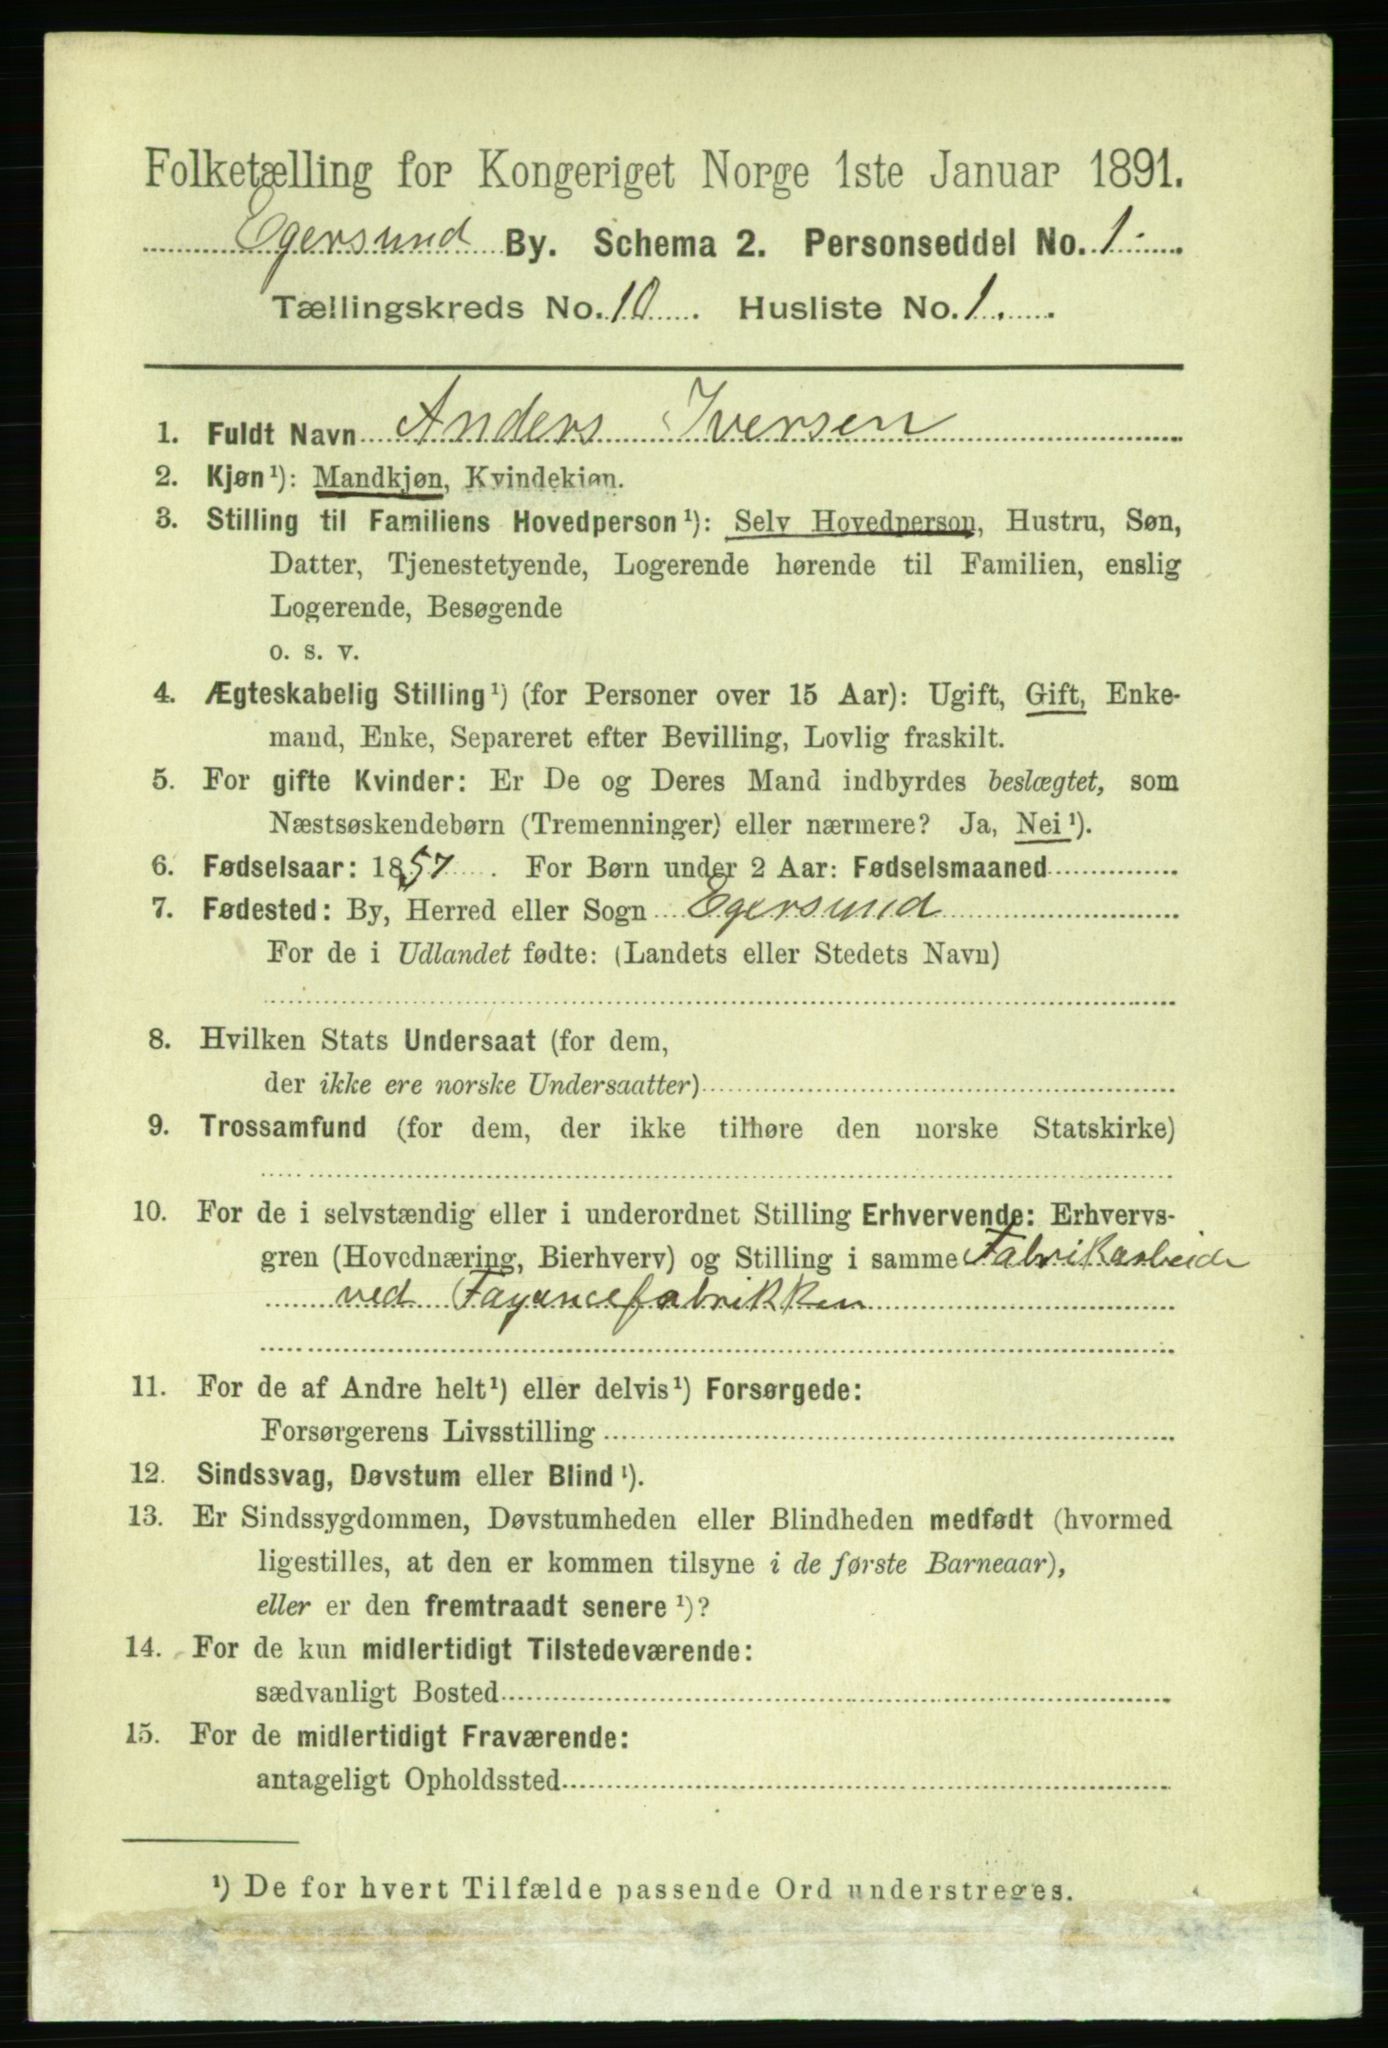 Folketælling for Kongeriget Norge 1ste Januar 1891.
Egersund By. Schema 2. Personseddel No. 1.
Tællingskreds No. 10. Husliste No. 1.
1. Fuldt Navn Anders Iversen
2. Kjøn¹): Mandkjøn, Kvindekjøn.
3. Stilling til Familiens Hovedperson¹): Selv Hovedperson, Hustru, Søn,
Datter, Tjenestetyende, Logerende hørende til Familien, enslig
Logerende, Besøgende
o. s. v.
4. Ægteskabelig Stilling¹) (for Personer over 15 Aar): Ugift, Gift, Enke-
mand, Enke, Separeret efter Bevilling, Lovlig fraskilt.
5. For gifte Kvinder: Er De og Deres Mand indbyrdes beslægtet, som
Næstsøskendebørn (Tremenninger) eller nærmere? Ja, Nei¹).
6. Fødselsaar: 1857. For Børn under 2 Aar: Fødselsmaaned
7. Fødested: By, Herred eller Sogn Egersund
For de i Udlandet fødte: (Landets eller Stedets Navn)
8. Hvilken Stats Undersaat (for dem,
der ikke ere norske Undersaatter)
9. Trossamfund (for dem, der ikke tilhøre den norske Statskirke)
10. For de i selvstændig eller i underordnet Stilling Erhvervende: Erhvervs-
gren (Hovednæring, Bierhverv) og Stilling i samme Fabrikarbeide
ved Fayancefabrikken
11. For de af Andre helt¹) eller delvis¹) Forsørgede:
Forsørgerens Livsstilling
12. Sindssvag, Døvstum eller Blind¹).
13. Er Sindssygdommen, Døvstumheden eller Blindheden medfødt (hvormed
ligestilles, at den er kommen tilsyne i de første Barneaar),
eller er den fremtraadt senere¹)?
14. For de kun midlertidigt Tilstedeværende:
sædvanligt Bosted
15. For de midlertidigt Fraværende:
antageligt Opholdssted
¹) De for hvert Tilfælde passende Ord understreges.